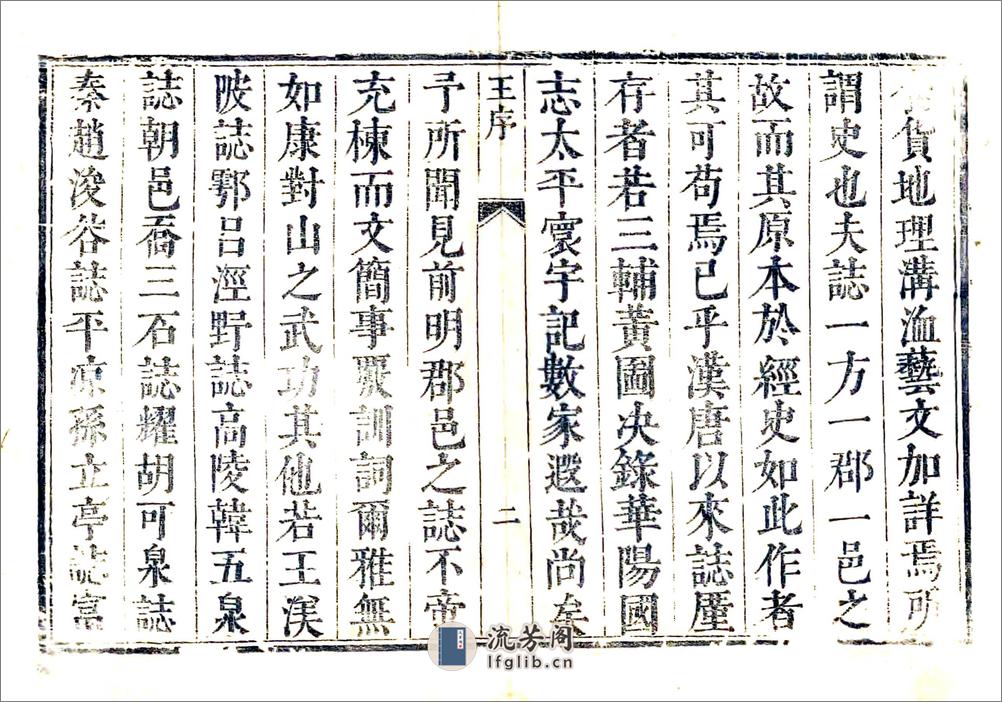 貨地理溝洫藝文加詳焉所
謂史也夫誌一方一郡一邑之
故而其原本於經史如此作者
其可苟焉已乎漢唐以來誌厪
存者若三輔黃圖決錄華陽國
志太平寰宇記數家遐哉尚矣
王序
二
予所聞見前明郡邑之誌不啻
充棟而文簡事覈訓詞爾雅無
如康對山之武功其他若王渼
陂誌鄠呂涇野誌高陵韓五泉
誌朝邑喬三石誌耀胡可泉誌
秦趙浚谷誌平凉孫立亭誌富
流芳阁
lfglib.cn